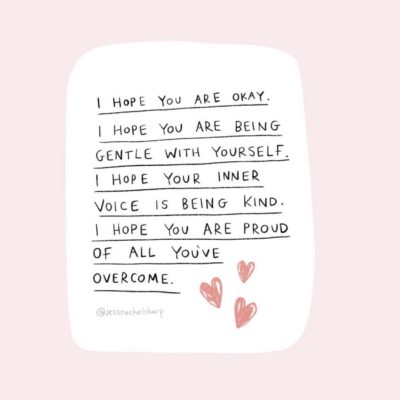 I HOPE YOU ARE OKAY.
I HOPE YOU ARE BEING
GENTLE WITH YOURSELF.
I HOPE YOUR INNER
VOICE IS BEING KIND.
I HOPE YOU ARE PROUD
OF ALL YOU'VE
OVERCOME.
@jessrachelsharp